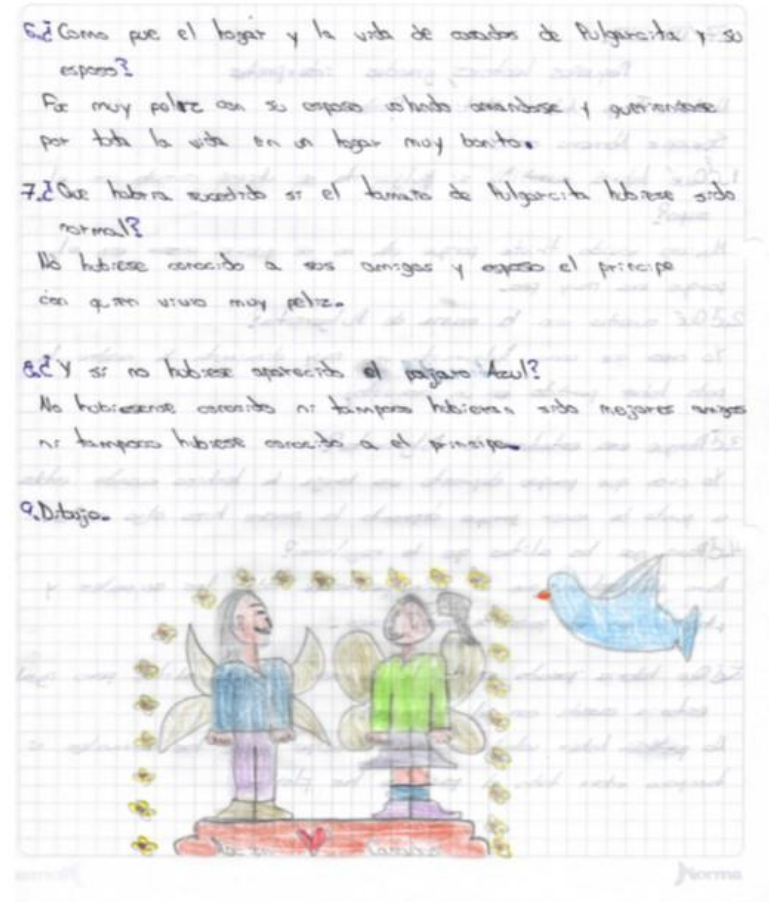 6.¿Como pue el hogar y la vida de casados de Pulgarcita y su
esposo?
Fue muy peliz con su esposo volando amandose y queriendose
por toda la vida en un hogar muy bonito.
7.¿Que habria sucedido si el tamaño de Pulgarcita hubiese sido
normal?
No hubiese conocido a sus amigos y esposo el principe
con quien vivio muy peliz.
8.¿Y si no hubiese aparecido el pajaro Azul?
No hubiesense conocido ni tampoco hubieran sido mejores amigos
ni tampoco hubiese conocido a el principe.
9.Dibujo.
Norma